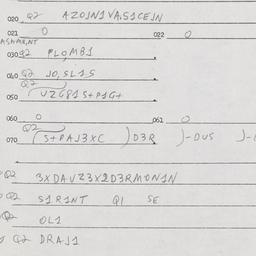 020 Q2 AZOJN1VA,S1CEJN
021 O 022 O
030 Q2 PLO,MB1
040 Q2 JO,SL1S
050 Q2 (UZG81S+P1G+
060 O 061 O
070 Q2 (S+PAJ3XC )D3R )-DUS
Q2 3XDAVZ3X2D3RMON1N
Q2 S1R1NT Q1 SE
Q2 OL1
Q2 DRAJ1